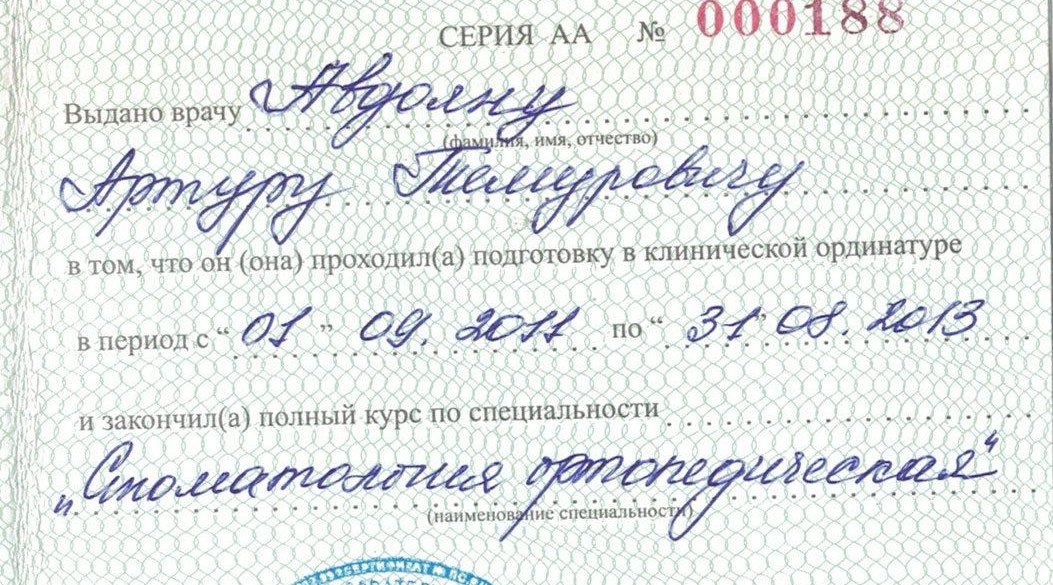 СЕРИЯ АА № 000188
Выдано врачу Авдояну
(фамилия, имя, отчество)
Артуру Темуровичу
в том, что он (она) проходил(а) подготовку в клинической ординатуре
в период с “ 01 ” 09. 2011 по “ 31 ” 08. 2013
и закончил(а) полный курс по специальности
„Стоматология ортопедическая“
(наименование специальности)